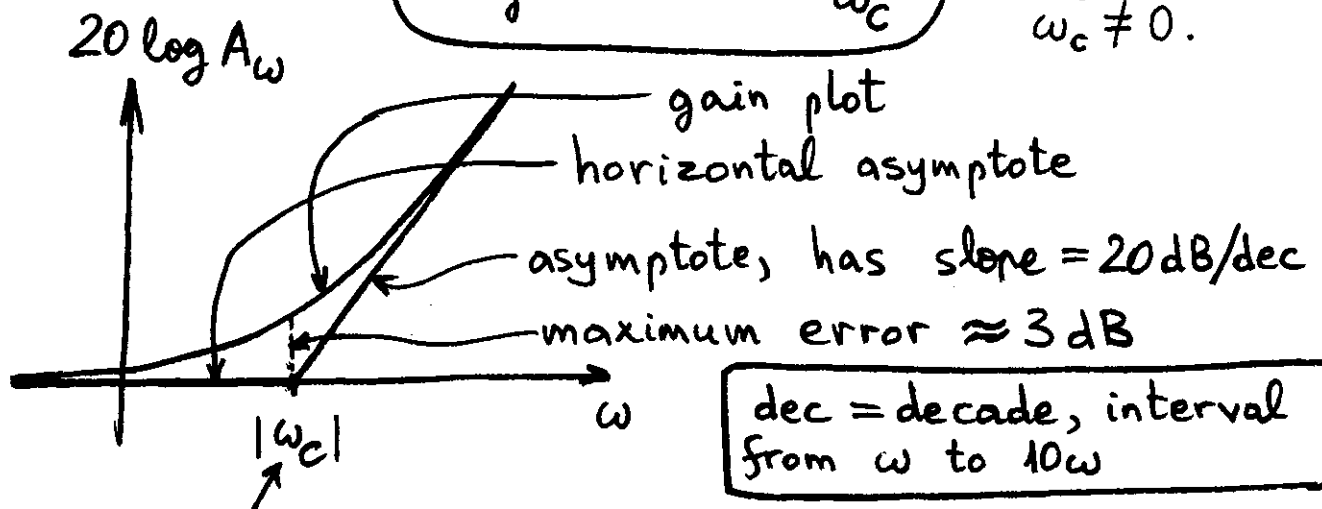 ω_c
ω_c ≠ 0.
20 log A_ω
gain plot
horizontal asymptote
asymptote, has slope = 20 dB/dec
maximum error ≈ 3 dB
ω
|ω_c|
dec = decade, interval
from ω to 10ω